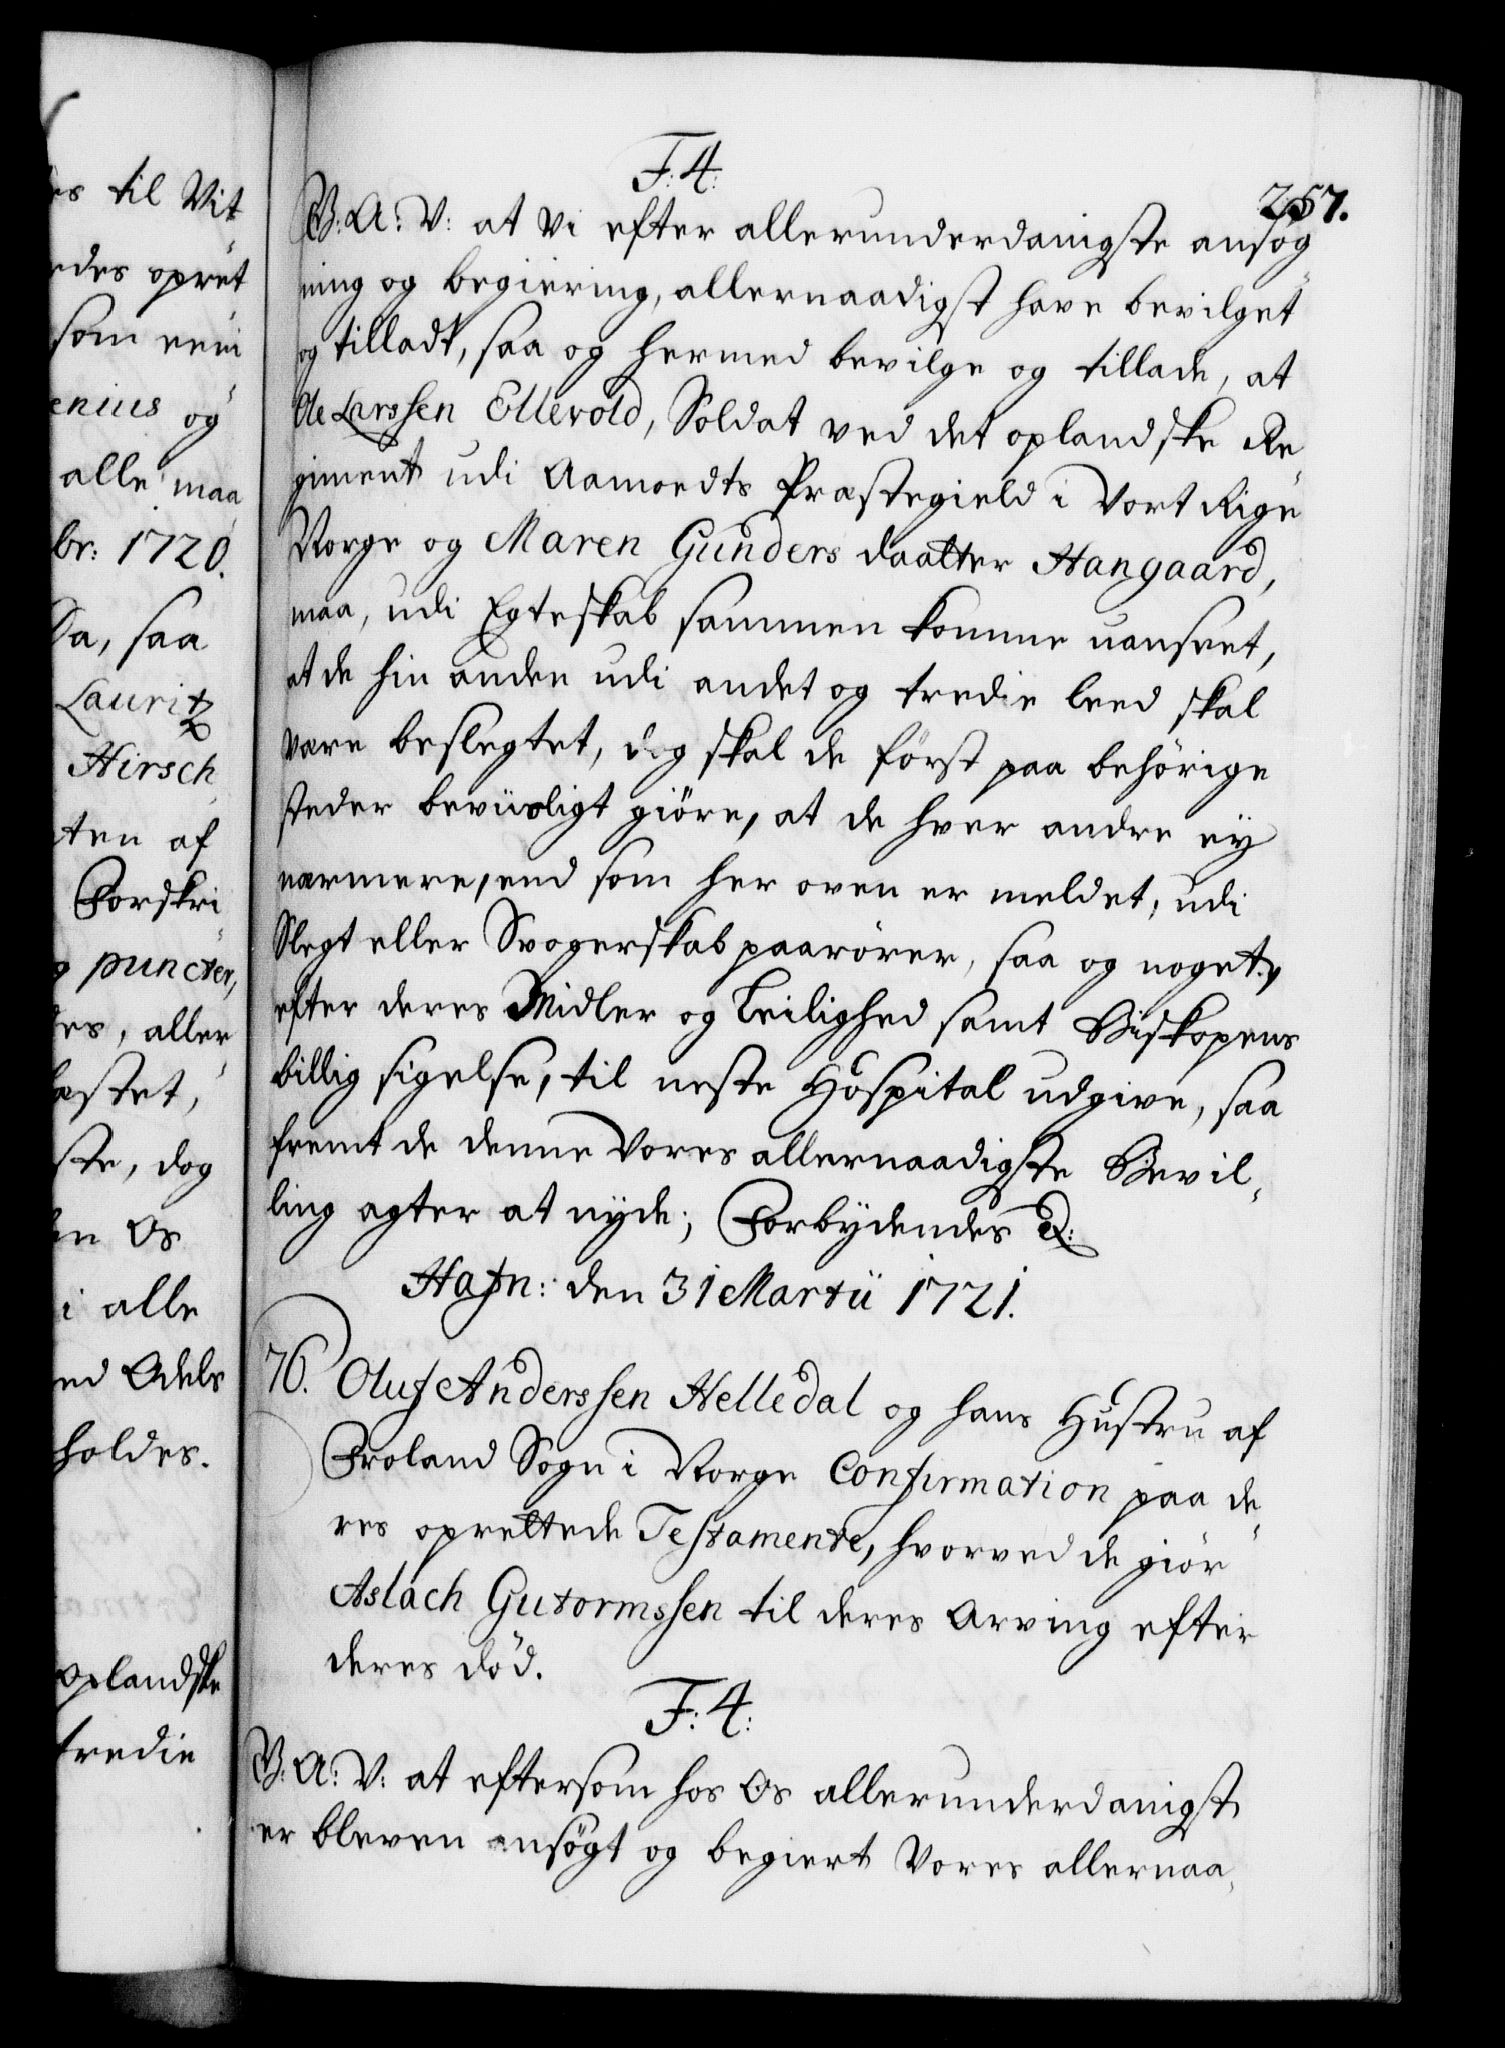 es til Vit
edes opret
som een
enius og
alle maa
br: 1720.
Da, saa
Lauritz
Hirsch
ten af
Forskri
puncter,
des, aller
æstet,
ste, dog
en Os
i alle
ed Adels
holdes.
Oplandske
tredie
257.
F: 4:
G: A: V: at Vi efter allerunderdanigste ansøg
ning og begiering, allernaadigst have bevilget
og tilladt, saa og hermed bevilge og tillade, at
Ole Larssen Ellevold, Soldat ved det oplandske Re
giment udi Aamoedts Præstegield i Vort Rige
Norge og Maren Gunders daatter Hangaard,
maa, udi Egteskab sammen komme uanseet,
at de hin anden udi andet og tredie leed skal
være beslegtet, dog skal de först paa behörige
steder beviisligt giöre, at de hver andre ey
nærmere, end som her oven er meldet, udi
Slegt eller Svogerskab paarörer, saa og noget,
efter deres Midler og Leilighed samt Biskopens
billig sigelse, til neste Hospital udgive, saa
fremt de denne Vores allernaadigste Bevil,
ling agter at nyde; Forbydendes &:
Hafn: den 31 Martii 1721.
76. Oluf Anderssen Helledal og hans Hustru af
Froland Sogn i Norge Confirmation paa de
res oprettede Testamente, hvorved de giör
Aslach Gutormssen til deres Arving efter
deres död.
F: 4:
G: A: V: at eftersom hos Os allerunderdanigst
er bleven ansögt og begiert Vores allernaa,